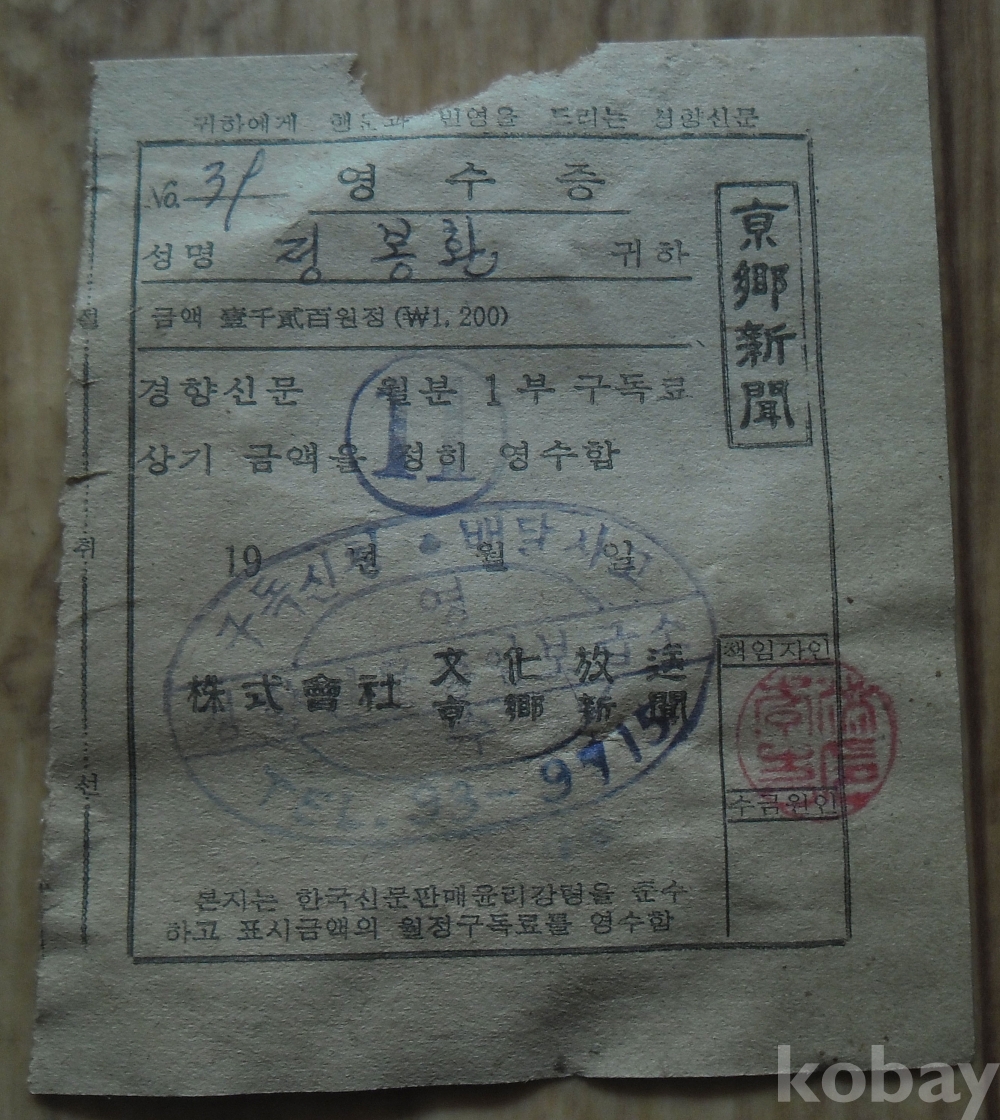 귀하에게 행운과 번영을 드리는 경향신문
No. 31 영수증
성명 정봉환 귀하
금액 壹千貳百원정 (₩1,200)
경향신문 11 월분 1부 구독료
상기 금액을 정히 영수함
19 년 월 일
구독신청 · 배달사고
株式會社 文化放送
京鄕新聞
93-9715
본지는 한국신문판매윤리강령을 준수
하고 표시금액의 월정구독료를 영수함
京鄕新聞
책임자인
수금원인
절취선
kobay